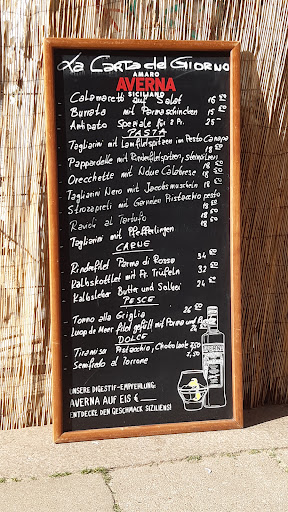 La Carta del GIORNO
AMARO
AVERNA
SICILIANO
Calamaretti auf Salat 16 50
Burrata mit Parmaschinken 15 50
Antipasto Speziale für 2 P. 25 -
PASTA
Tagliarini mit Lammfiletspitzen im Pesto
Pappardelle mit Rinderfiletspitzen, Steinpilzen
Orecchette mit Ndue Calabrese 18 50
Tagliarini Nero mit Jacobsmuscheln 18 50
Strozapreti mit Garnelen Pistacchio pesto
Ravioli al Tartufo 18 50
Tagliarini mit Pfefferlingen
CARNE
Rinderfilet Parma di Rosso 34 50
Kalbskotlet mit Fr. Trüfeln 32 50
Kalbsleber Butter und Salbei 24 50
PESCE
Tonno alla Griglia 26 50
Luop de Meer filet gefüllt mit Parma und
DOLCE
Tiramisu Pistacchio, Chokolate 7,50
Semifredo al Torrone 7,50
UNSERE DIGESTIF-EMPFEHLUNG:
AVERNA AUF EIS €
ENTDECKE DEN GESCHMACK SIZILIENS!